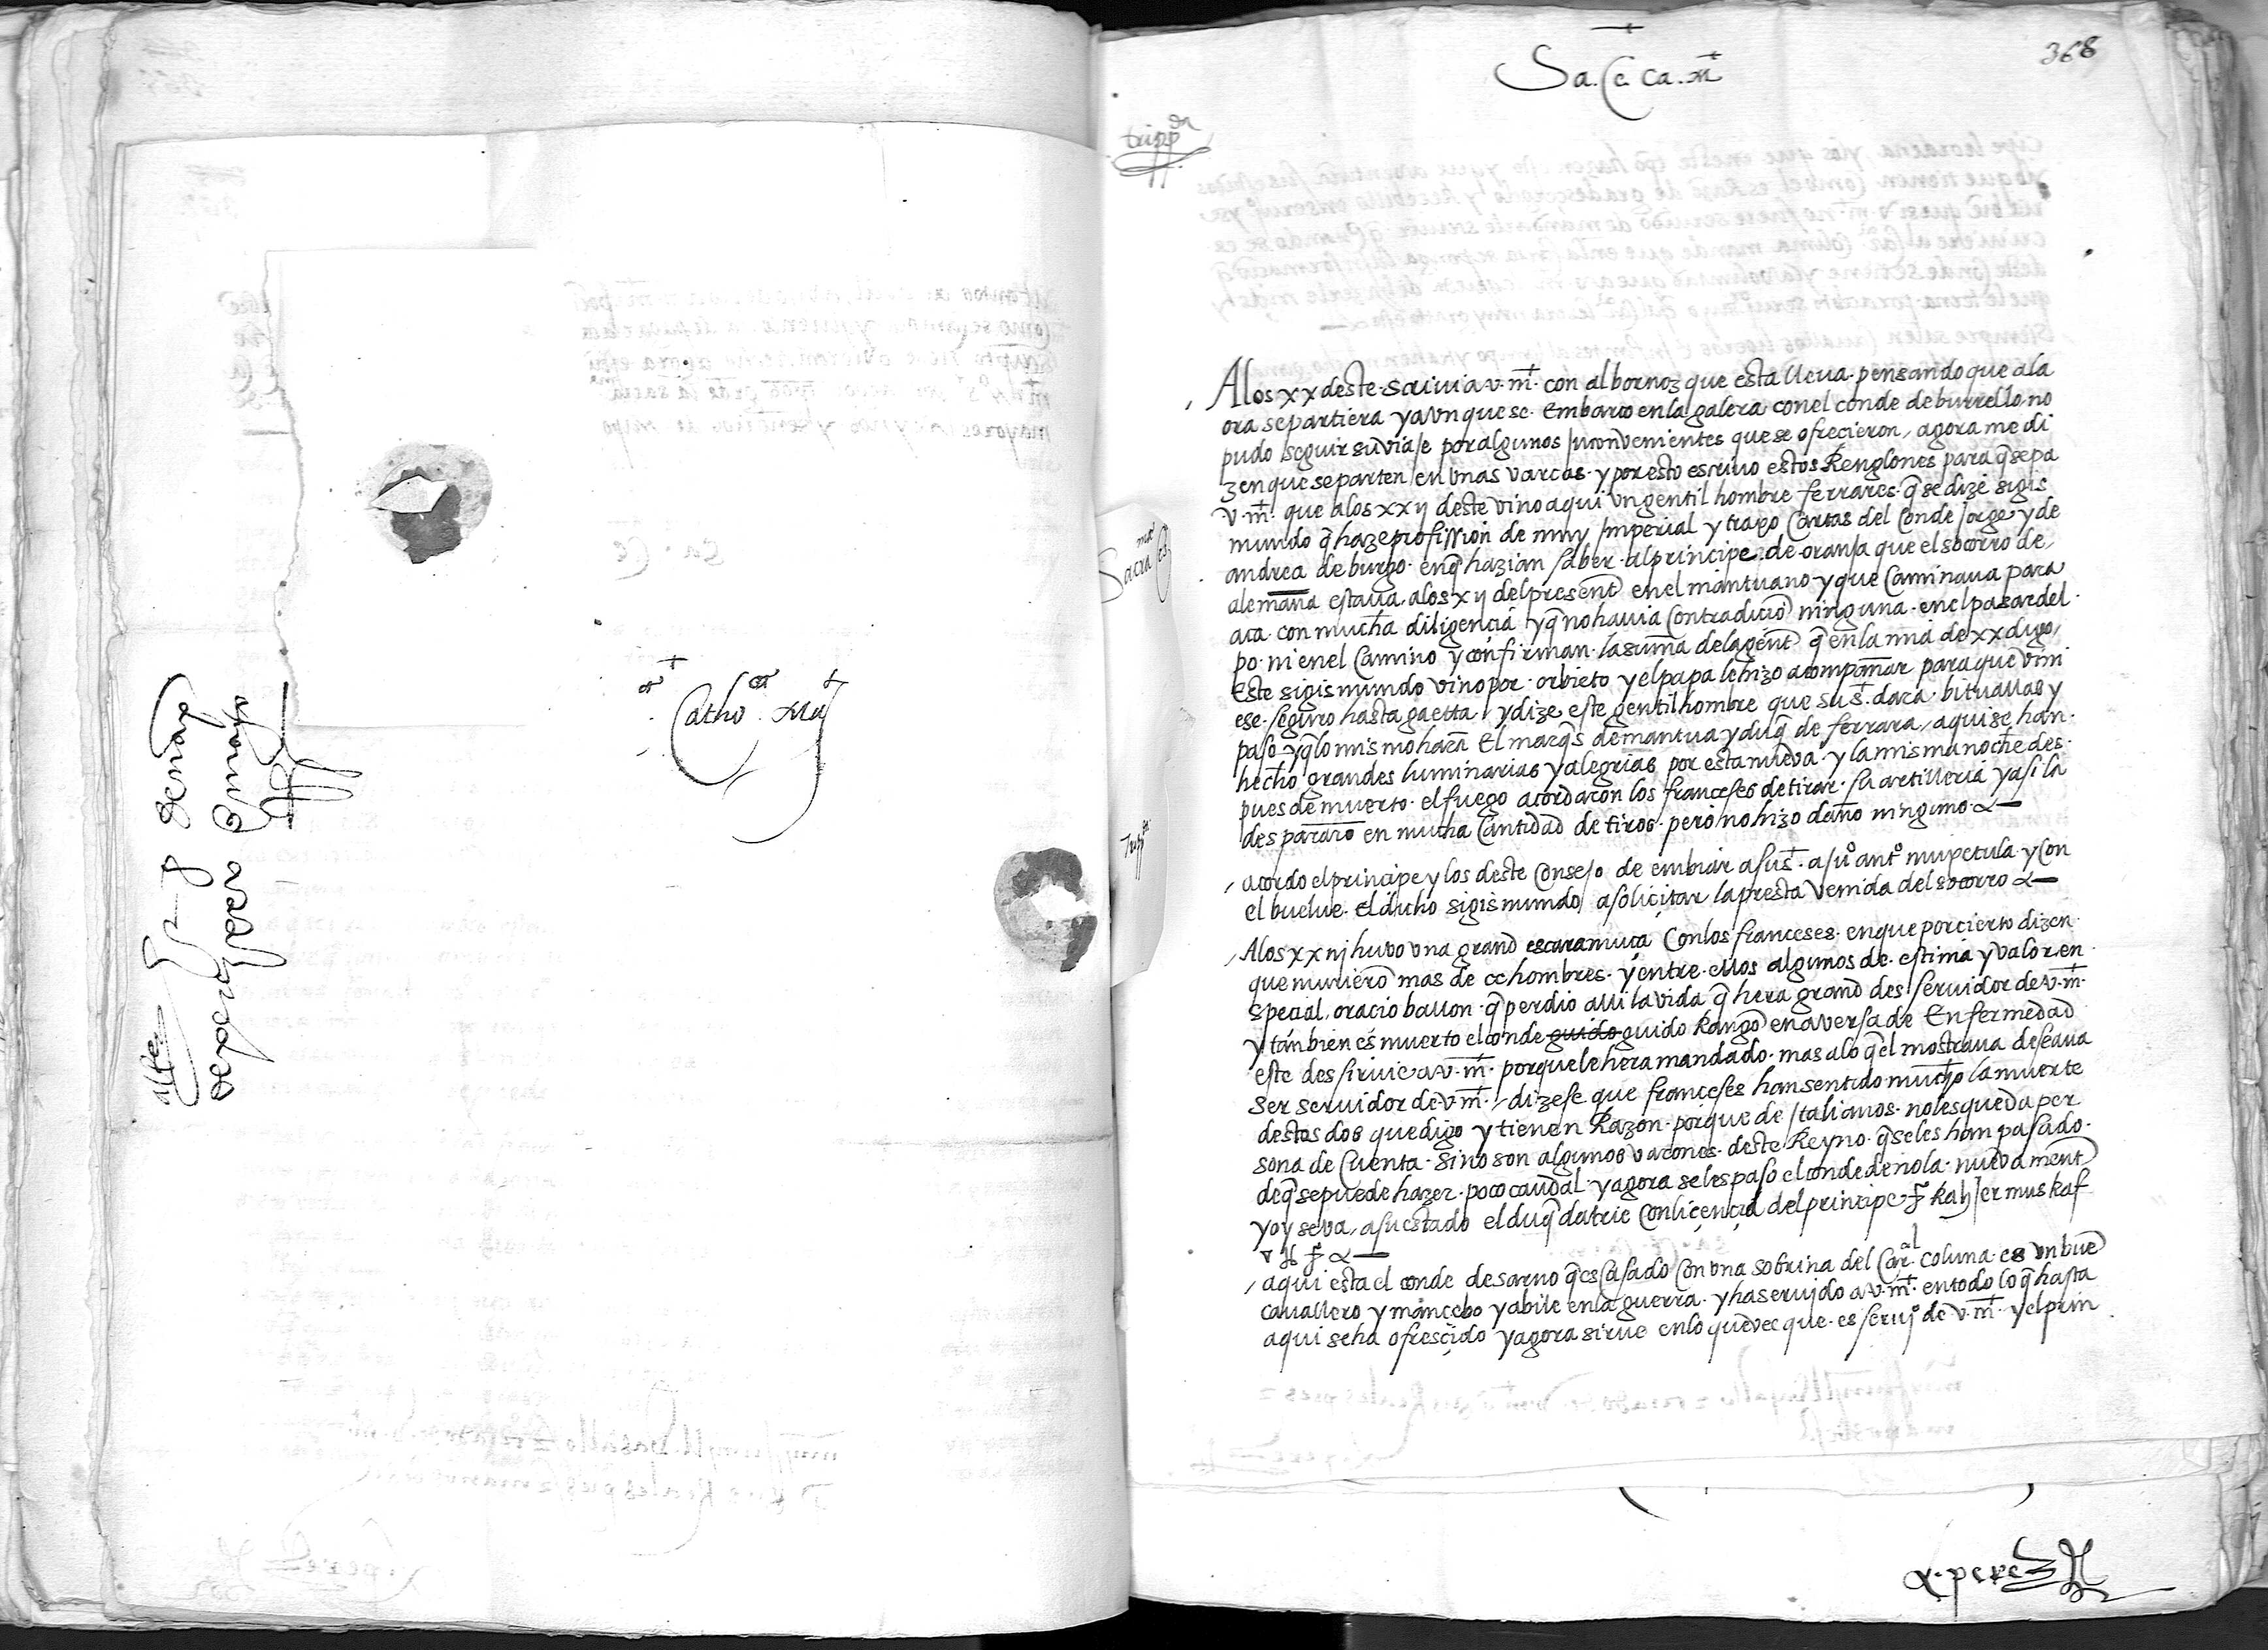 Catho ca Mat
de perez para su mag
368
+
Sa. Ce. Ca. M
tripp da
Sacra Ces
mat
Tripp da
Alos xx deste scrivi a v. m. con albornoz que esta lleva. pensando que a la
ora se partiera y avn que se. Embarco en la galera con el conde de burrello no
pudo seguir su viaje por algunos Inconvenientes que se ofrecieron, agora me di
zen que se parten en vnas varcas. y por esto escrivo estos Renglones para q sepa
v. m. que a los xxij deste vino aqui vn gentil hombre ferrares. q se dize sigis
mundo q haze profission de muy Imperial y traxo Cartas del Conde Jorge y de
andrea de burgo. en q hazian saber. al principe. de oranja que el socorro de
alemaña estava. alos xij del present en el mantuano. y que Caminava para
aca. con mucha diligençia y q no havia Contradicio ninguna. en el pasar del
po. ni en el Camino y confirman. la suma de la gent q en la mia de xx digo,
Este sigismundo vino por. orbieto y el papa le hizo acompañar para que vini
ese. seguro hasta gaetta. y dize este gentil hombre que su s. dara. bituallas y
paso y q lo mismo hara El marqs de mantua y duq de ferrara, aqui se han.
hecho grandes luminarias y alegrias por esta nueva. y la misma noche des.
pues de muerto. el fuego acordaron los franceses de tirar. su artilleria y asi la
despararo en mucha Cantidad de tiros. pero no hizo daño ninguno. &—
, acordo el principe y los deste Consejo de embiar a su s. a su ant muxetula. y Con
el buelue. El dicho sigismundo a soliçitar la presta venida del socorro &—
, Alos xxiij huvo vna grand escaramuça Con los franceses. en que por cierto dizen.
que muriero mas de cc hombres. y entre. ellos algunos de. estima y valor en
special, oracio ballon. q perdio alli la vida q hera grand desservidor de v. m.
y tanbien es muerto el conde guido guido Rangō en aversa de Enfermedad
este desservie a v. m. porque le hera mandado. mas a lo q el mostrava deseava
ser servidor de v. m., dizese que franceses han sentido mucho la muerte
destos dos que digo y tienen Razon. porque de Italianos. no les queda per
sona de Cuenta. Sino son algunos varones. deste Reyno. q se les han pasado.
de q se puede hazer. poco caudal. y agora se les paso el conde de nola. nuevament
y oy se va, a su estado el duq datrie Con liçençia del principe
, aqui esta el conde de sarno q es Casado Con vna sobrina del Car.al coluna. es vn bue
cavallero y mançebo y abile en la guerra. y ha servido a v. m. en todo lo q hasta
aqui se ha ofresçido y agora sirve en lo que vee que. es serui.o de v. m. y el prin
&. perez